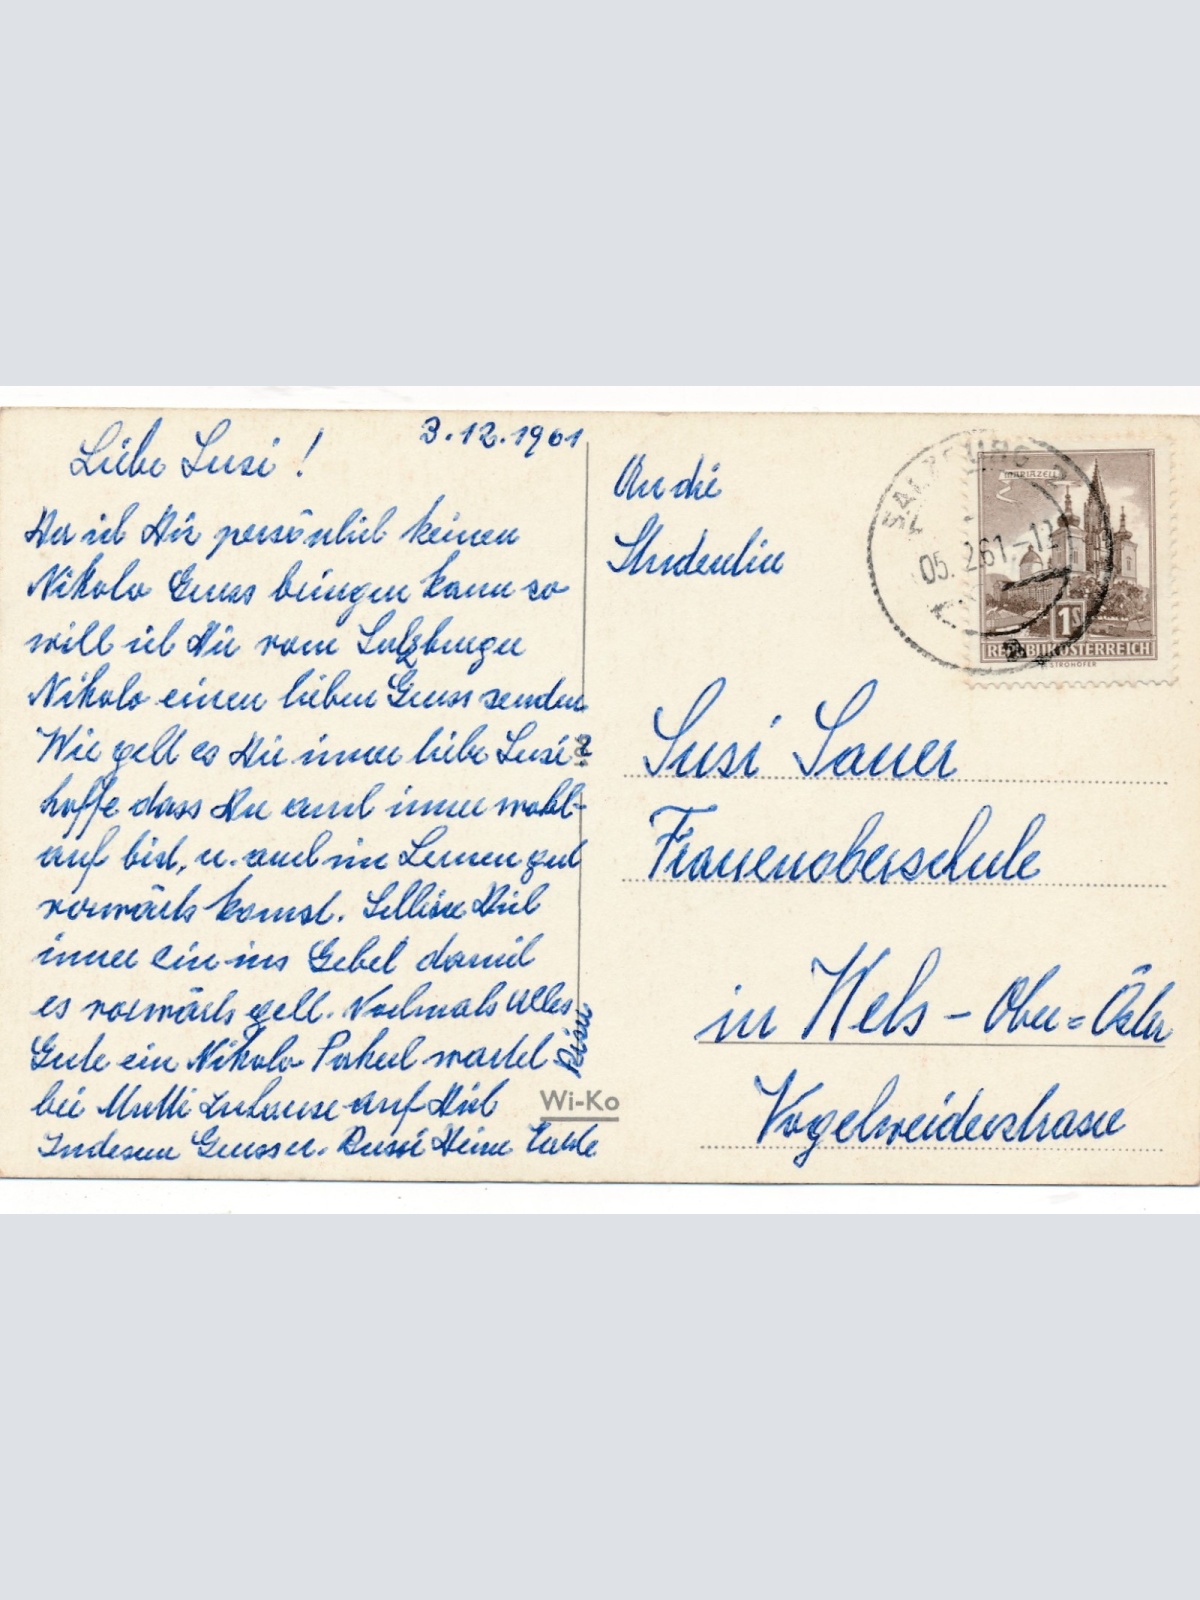 3.12.1961
Liebe Susi!
Da ich Dir persönlich keinen
Nikolo Gruss bringen kann so
will ich Dir vom Salzburger
Nikolo einen lieben Gruss senden
Wie geht es Dir immer liebe Susi?
hoffe dass Du auch immer wohl-
auf bist, u. auch im Lernen gut
vorwärts komst. Schliese Dich
immer ein ins Gebet damit
es vorwärts geht. Nochmals alles
Gute ein Nikolo Packerl wartet
bei Mutti zuhause auf Dich
Indessen Grüsse u. Bussi Deine Tante
An die
Studentin
Susi Sauer
Frauenoberschule
in Wels - Ober=Östr
Vogelweiderstrasse
Wi-Ko
SALZBURG
05. 2.61-12
MARIAZELL
1S
REPUBLIK ÖSTERREICH
STROHOFER